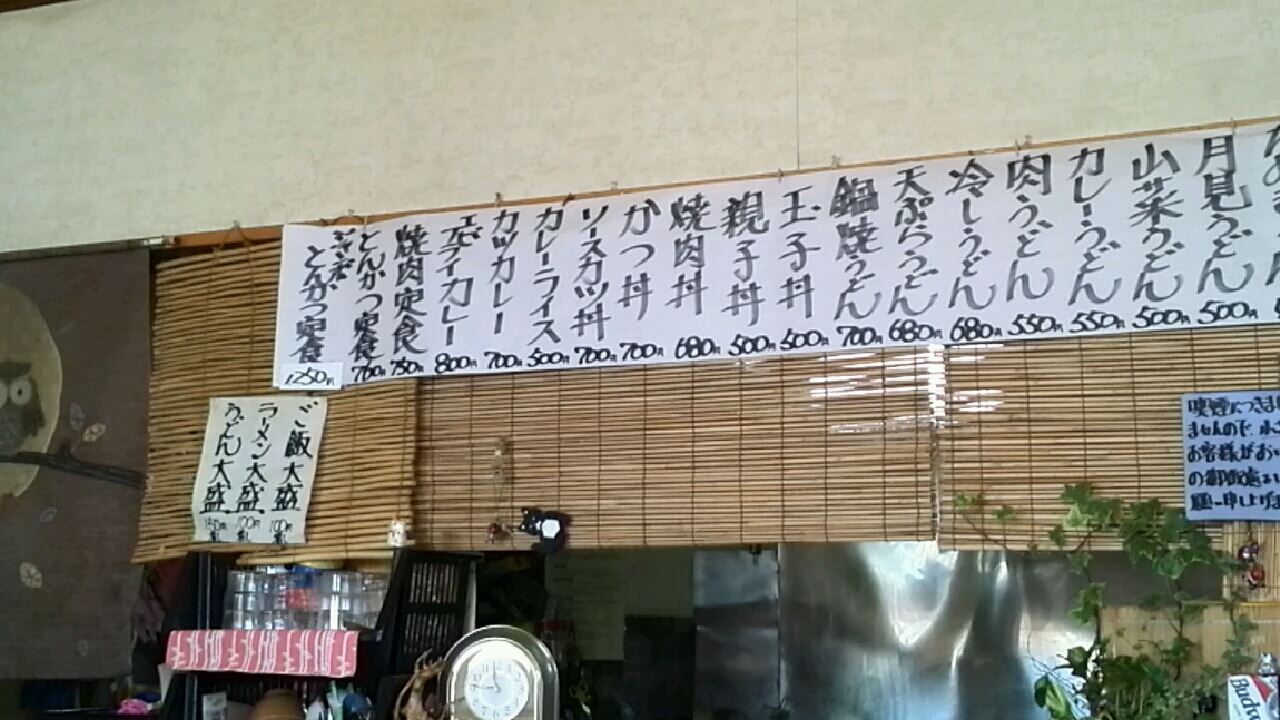 月見うどん 500円
山菜うどん 500円
カレーうどん 550円
肉うどん 550円
冷しうどん 680円
天ぷらうどん 680円
鍋焼うどん 700円
玉子丼 500円
親子丼 500円
焼肉丼 680円
かつ丼 700円
ソースカツ丼 700円
カレーライス 500円
カツカレー 700円
エビフライカレー 800円
焼肉定食 750円
とんかつ定食 700円
ジャンボとんかつ定食 1250円
ご飯大盛 100円
ラーメン大盛 100円
うどん大盛 150円
喫煙につきまし
ませんので、
お客様がお
の御配慮
願い申し上げま
Budw